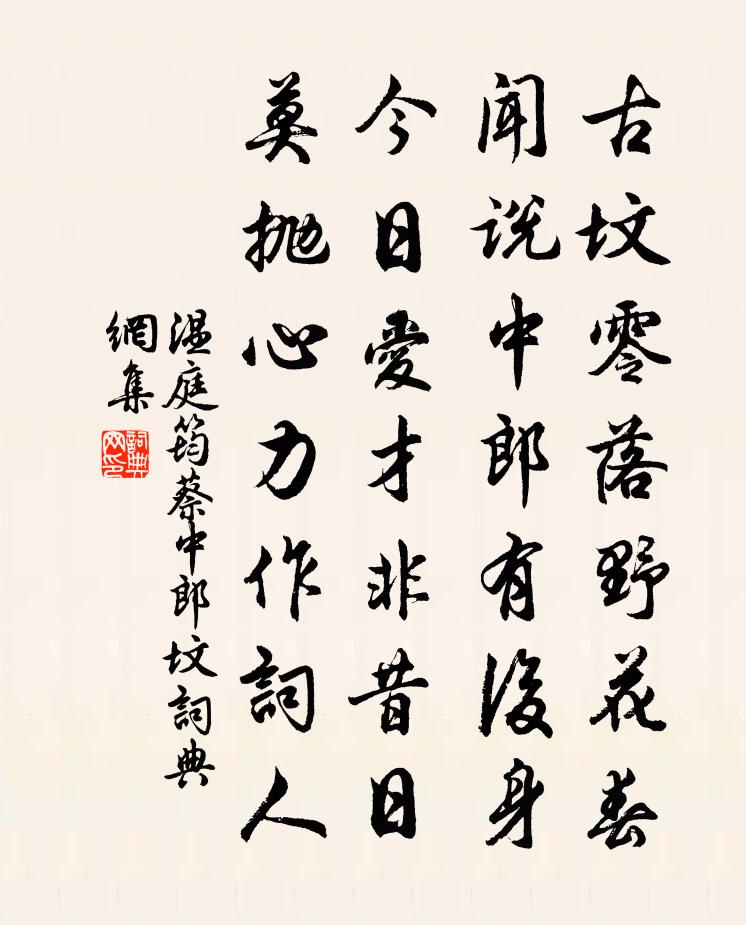 古坟零落野花春
闻说中郎有後身
今日爱才非昔日
莫抛心力作詞人
温庭筠蔡中郎坟詞典
網集
詞典網印